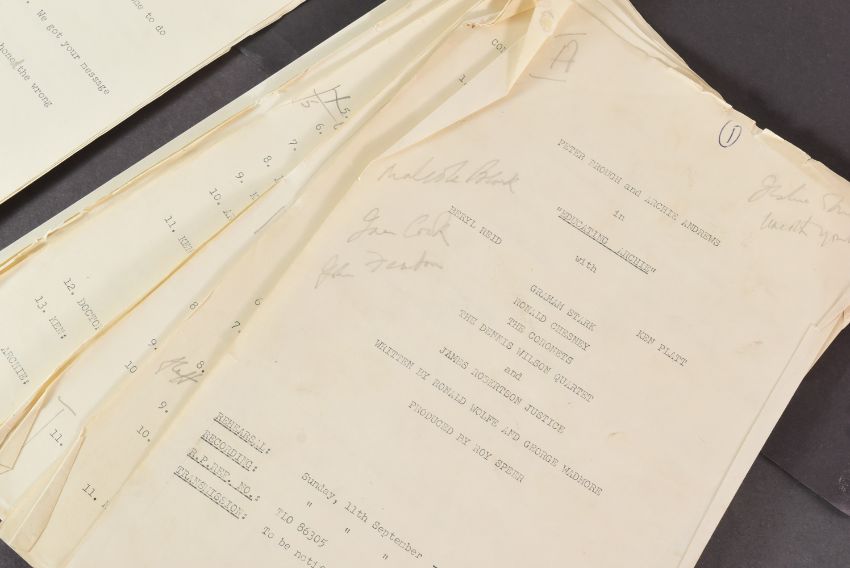 to do
. We got your message
the wrong
A
1
PETER BROUGH and ARCHIE ANDREWS
in
"EDUCATING ARCHIE"
with
BERYL REID
KEN PLATT
GRAHAM STARK
RONALD CHESNEY
THE CORONETS
THE DENNIS WILSON QUARTET
and
JAMES ROBERTSON JUSTICE
WRITTEN BY RONALD WOLFE AND GEORGE WADMORE
PRODUCED BY ROY SPEER
REHEARSAL: Sunday, 11th September
RECORDING: " " "
R.P.REF. NO.: TLO 86305
TRANSMISSION: To be notif
1.
5.
6.
7.
8.
9.
10.
11. KEN
12. DOCTO
13. KEN:
ARCHIE:
8
9.
10
11.
6
7.
8.
9.
10.
11.